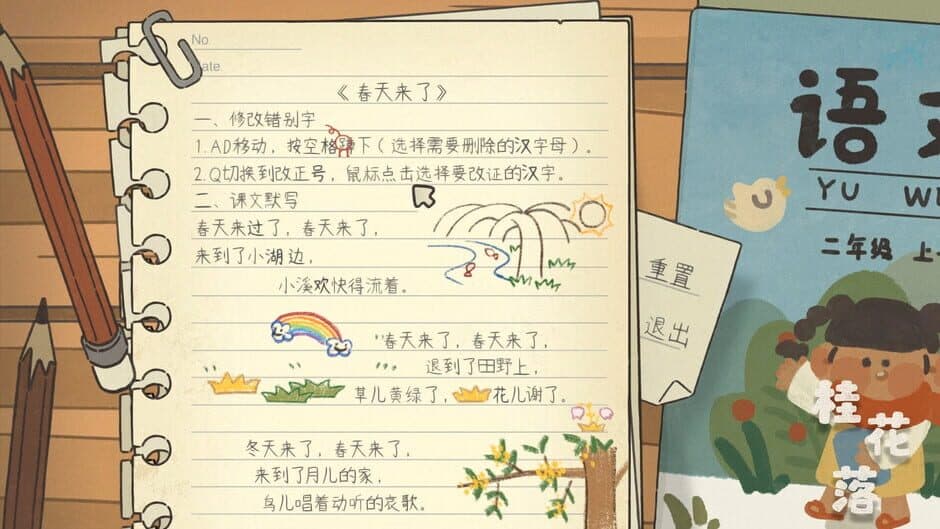 No
ate
《春天来了》
一、修改错别字
1.AD移动，按空格 下（选择需要删除的汉字母）。
2.Q切换到改正号，鼠标点击选择要改证的汉字。
二、课文默写
春天来过了，春天来了，
来到了小湖边，
小溪欢快得流着。
春天来了，春天来了，
退到了田野上，
草儿黄绿了，花儿谢了。
冬天来了，春天来了，
来到了月儿的家，
鸟儿唱着动听的哀歌。
重置
退出
语
YU W
二年级 上
桂花落